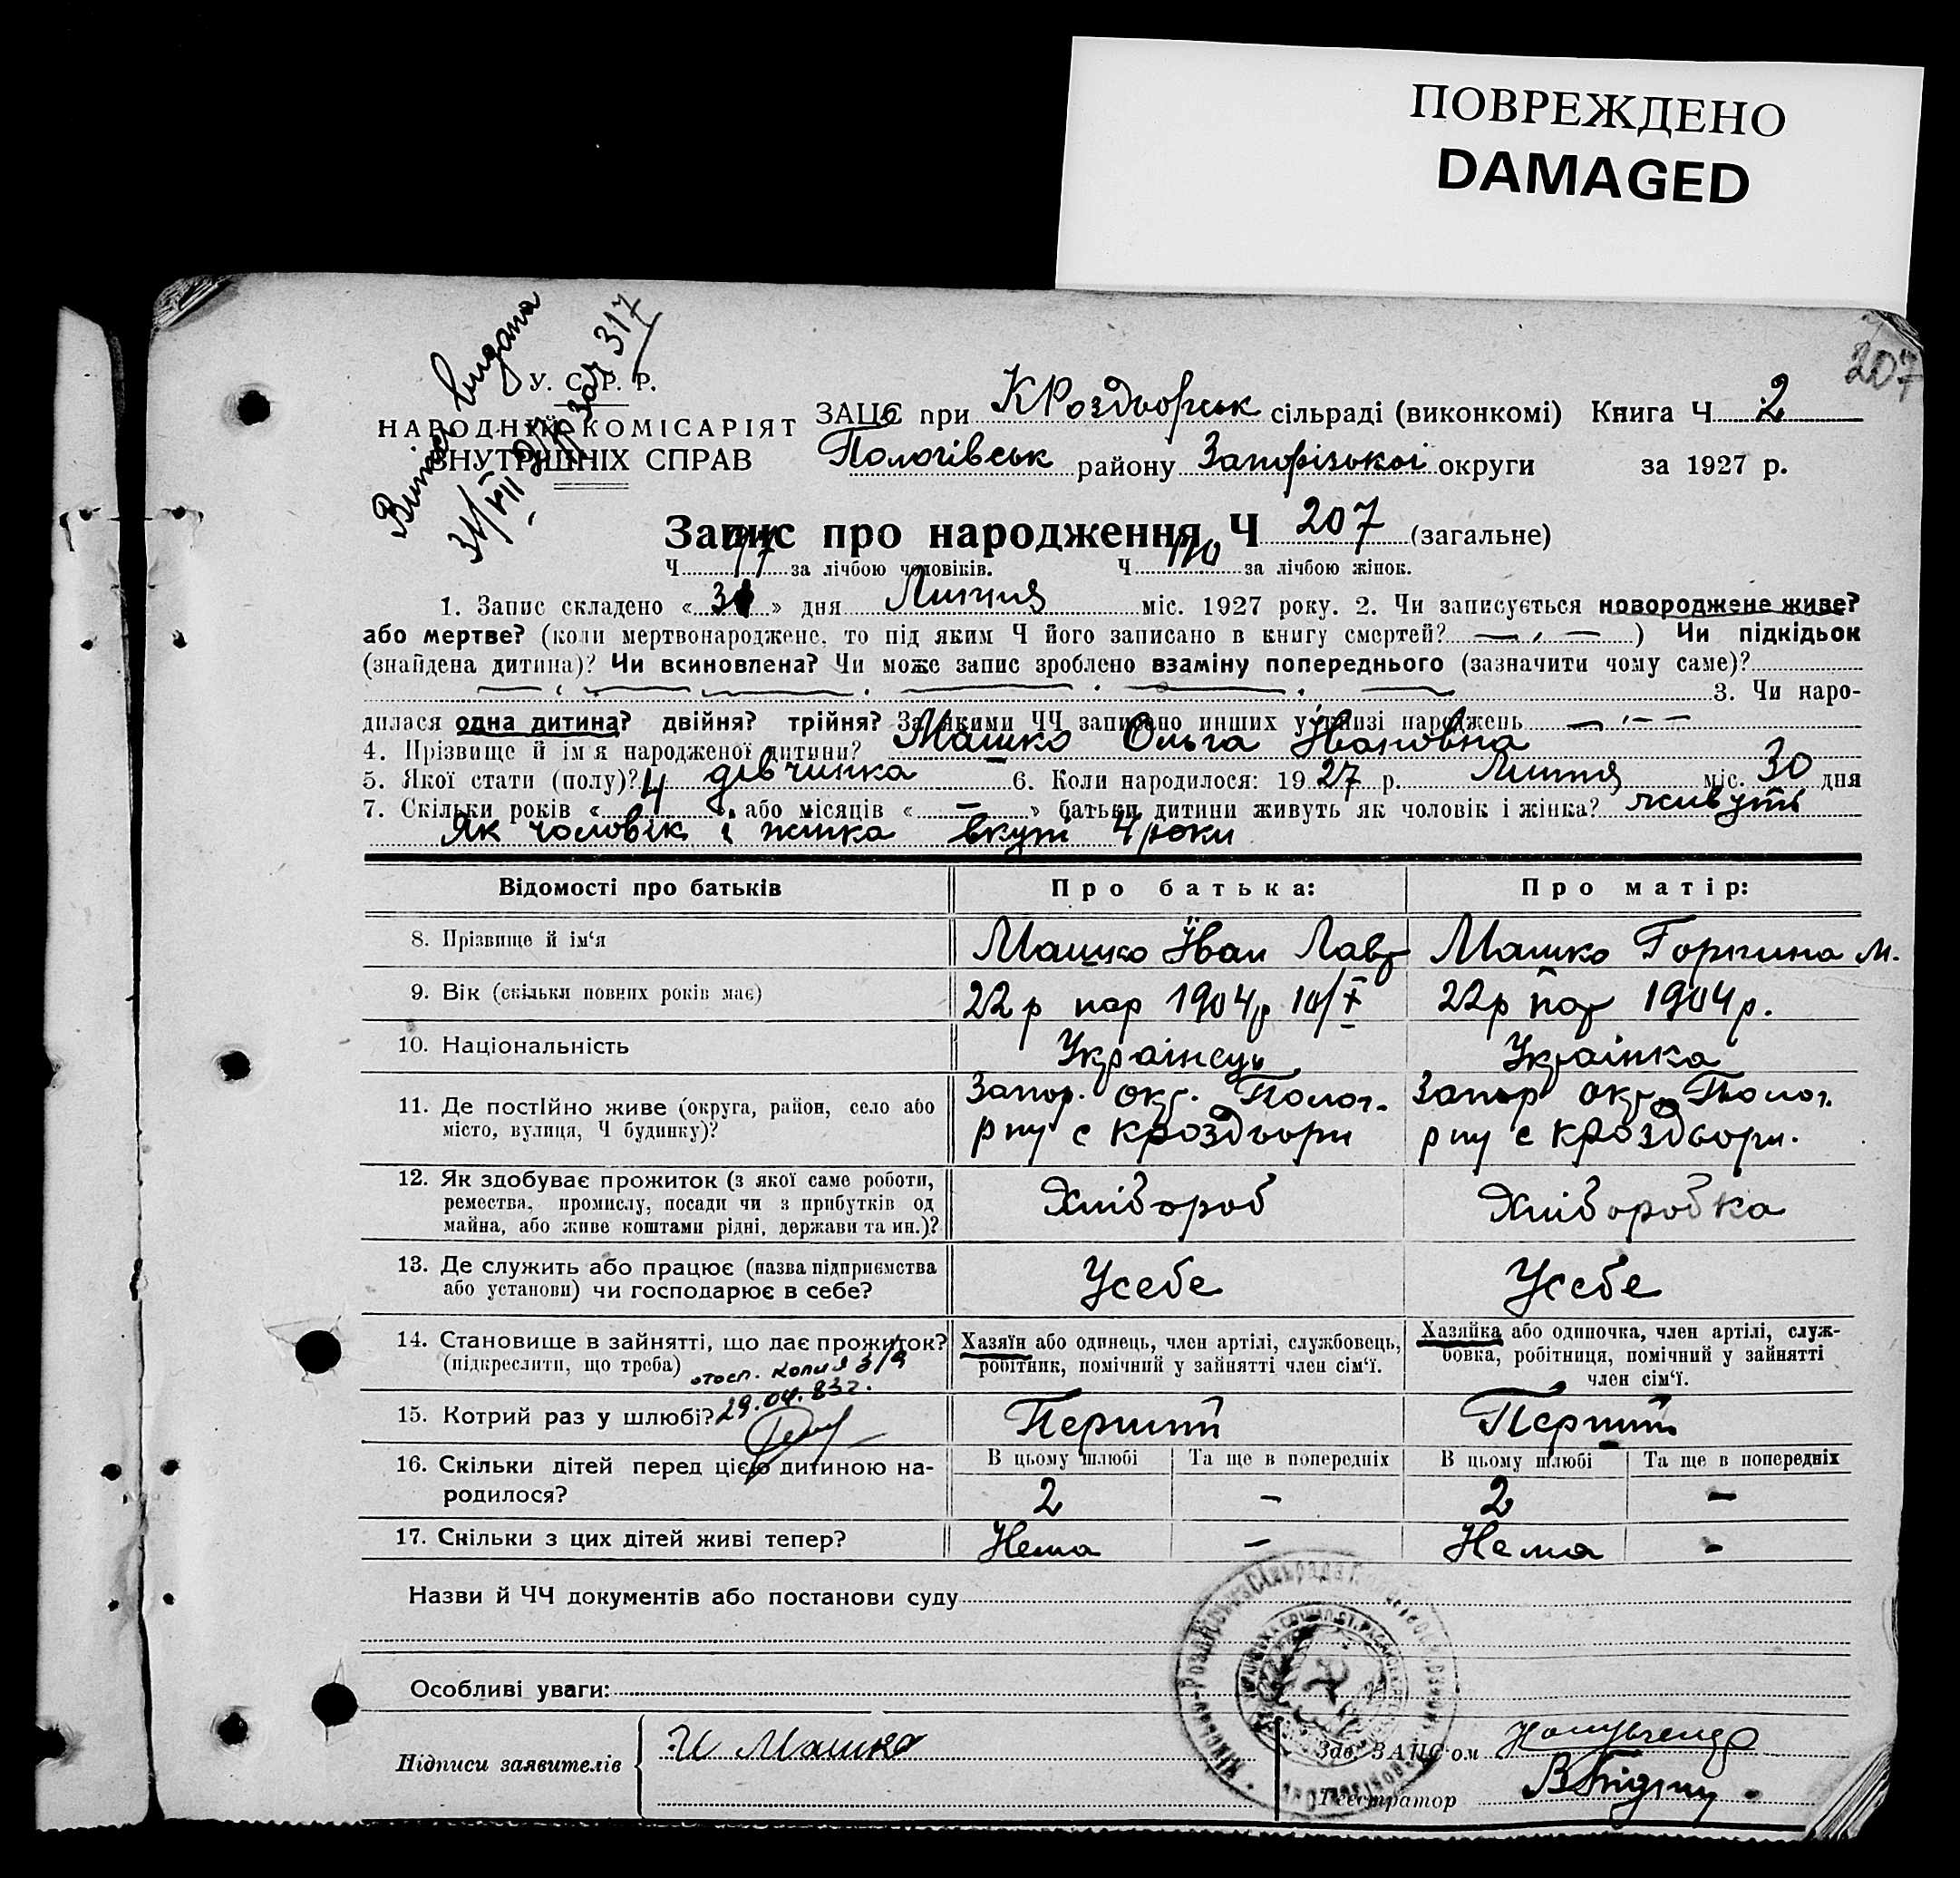 ПОВРЕЖДЕНО
DAMAGED
207
Витяг видана
31/VII 317
У. С. Р. Р.
НАРОДНИЙ КОМІСАРІЯТ
ВНУТРІШНІХ СПРАВ
ЗАЦС при КРоздорськ сільраді (виконкомі) Книга Ч 2
Пологівськ району Запорізької округи за 1927 р.
Запис про народження Ч 207 (загальне)
Ч 97 за лічбою чоловіків. Ч 110 за лічбою жінок.
1. Запис складено « 31 » дня Липня міс. 1927 року. 2. Чи записується новороджене живе?
або мертве? (коли мертвонароджене, то під яким Ч його записано в книгу смертей? — , — ) Чи підкідьок
(знайдена дитина)? Чи всиновлена? Чи може запис зроблено взаміну попереднього (зазначити чому саме)?
3. Чи наро-
дилася одна дитина? двійня? трійня? За якими ЧЧ записано инших у книзі народжень
4. Прізвище й ім'я народженої дитини? Машко Ольга Івановна
5. Якої стати (полу)? дівчинка 6. Коли народилося: 1927 р. Липня міс. 30 дня
7. Скільки років « 4 » або місяців « — » батьки дитини живуть як чоловік і жінка? живуть
Як чоловік і жінка вкупі 4 роки
Відомості про батьків Про батька: Про матір:
8. Прізвище й ім'я Машко Іван Лавр Машко Горпина М.
9. Вік (скільки повних років має) 22 р нар 1904 р 10/X 22 р нар 1904 р.
10. Національність Українець Українка
11. Де постійно живе (округа, район, село або
місто, вулиця, Ч будинку)?
Запор. окр. Полог. Запор окр. Полог.
р ну с КРоздори р ну с КРоздори.
12. Як здобуває прожиток (з якої саме роботи,
ремества, промислу, посади чи з прибутків од
майна, або живе коштами рідні, держави та ин.)?
Хлібороб Хлiборобка
13. Де служить або працює (назва підприємства
або установи) чи господарює в себе?
Усебе Усебе
14. Становище в зайнятті, що дає прожиток?
(підкреслити, що треба)
Хазяїн або одинець, член артілі, службовець,
робітник, помічний у зайнятті член сім'ї.
Хазяйка або одиночка, член артілі, служ-
бовка, робітниця, помічний у зайнятті
член сім'ї.
отосл. копия 3/9
29.04.83г.
15. Котрий раз у шлюбі? Перший Перший
16. Скільки дітей перед цією дитиною на-
родилося?
В цьому шлюбі Та ще в попередніх В цьому шлюбі Та ще в попередніх
2 – 2 –
17. Скільки з цих дітей живі тепер? Нема – Нема –
Назви й ЧЧ документів або постанови суду
Особливі уваги:
Підписи заявителів И Машко
Зав. ЗАЦС'ом
Реєстратор